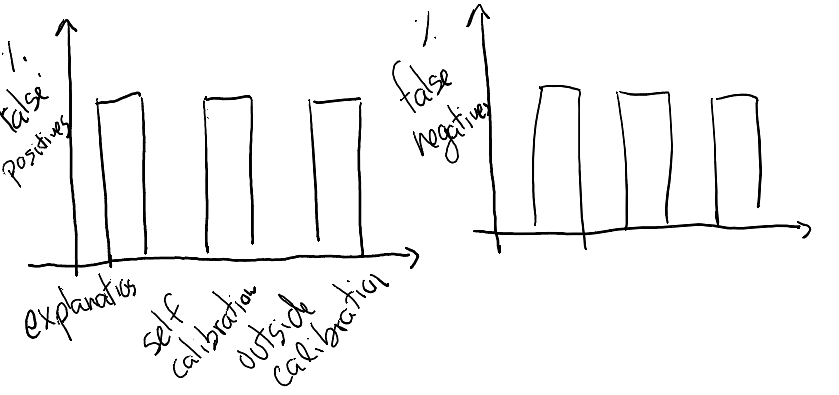 %
false
positives
explanations
self
calibration
outside
calibration
%
false
negatives